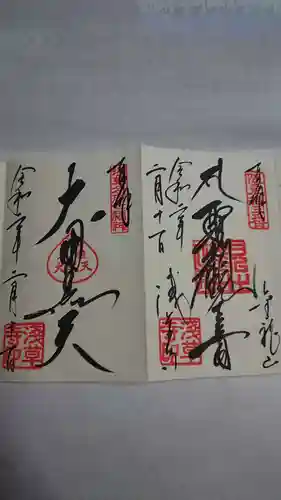 奉拝
金龍山
聖観世音
令和二年
二月十一日
浅草寺
浅草寺印
奉拝
大黒天
令和二年二月十一日
浅草寺印